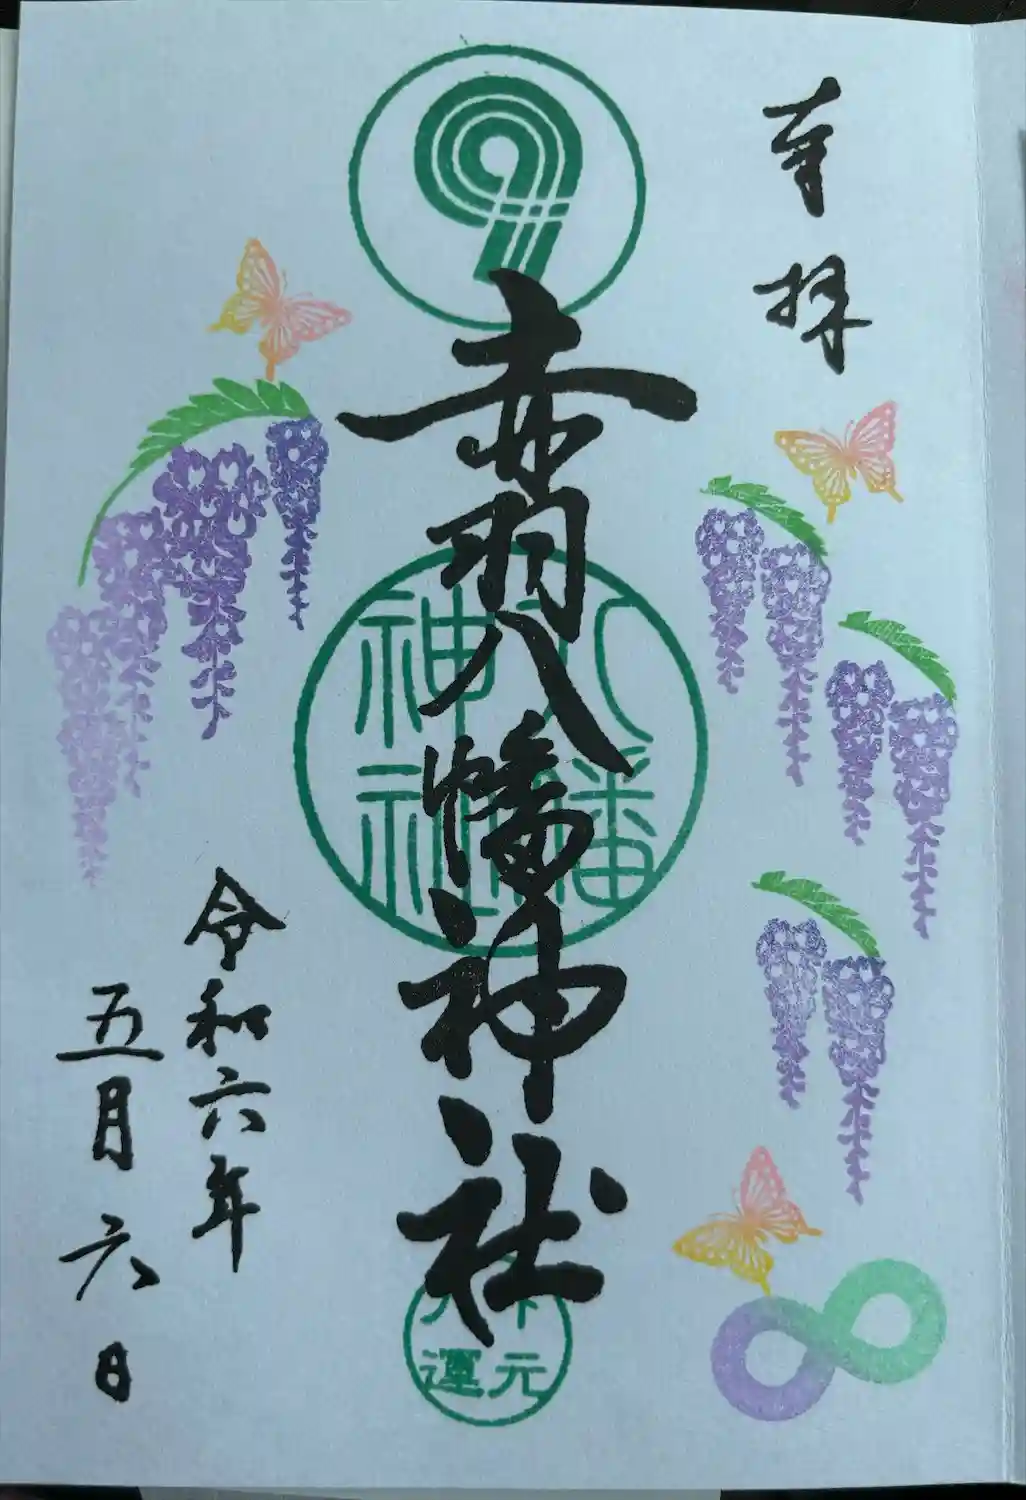 奉拝
赤羽八幡神社
八幡
神社
元
運
令和六年
五月六日